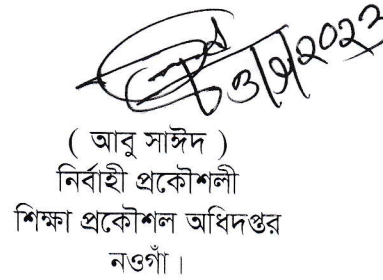 ( আবু সাঈদ )
নির্বাহী প্রকৌশলী
শিক্ষা প্রকৌশল অধিদপ্তর
নওগাঁ।